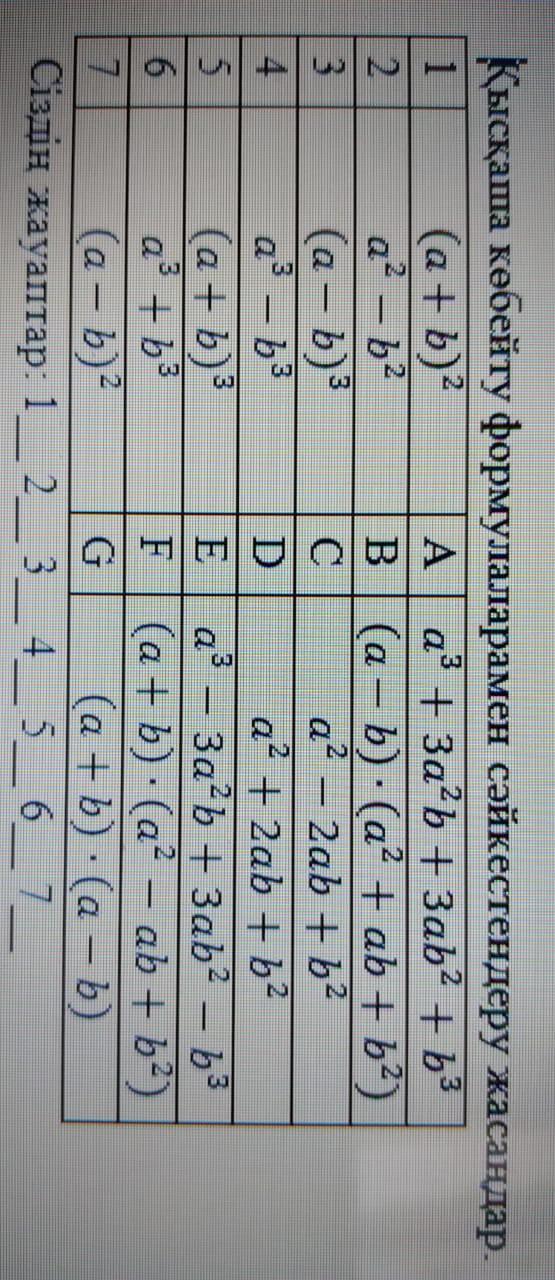 Қысқаша көбейту формулаларамен сәйкестендеру жасаңдар.
1 (a + b)² A a³ + 3a²b + 3ab² + b³
2 a² − b² B (a − b) · (a² + ab + b²)
3 (a − b)³ C a² − 2ab + b²
4 a³ − b³ D a² + 2ab + b²
5 (a + b)³ E a³ − 3a²b + 3ab² − b³
6 a³ + b³ F (a + b) · (a² − ab + b²)
7 (a − b)² G (a + b) · (a − b)
Сіздің жауаптар: 1__ 2__ 3__ 4__ 5__ 6__ 7 __